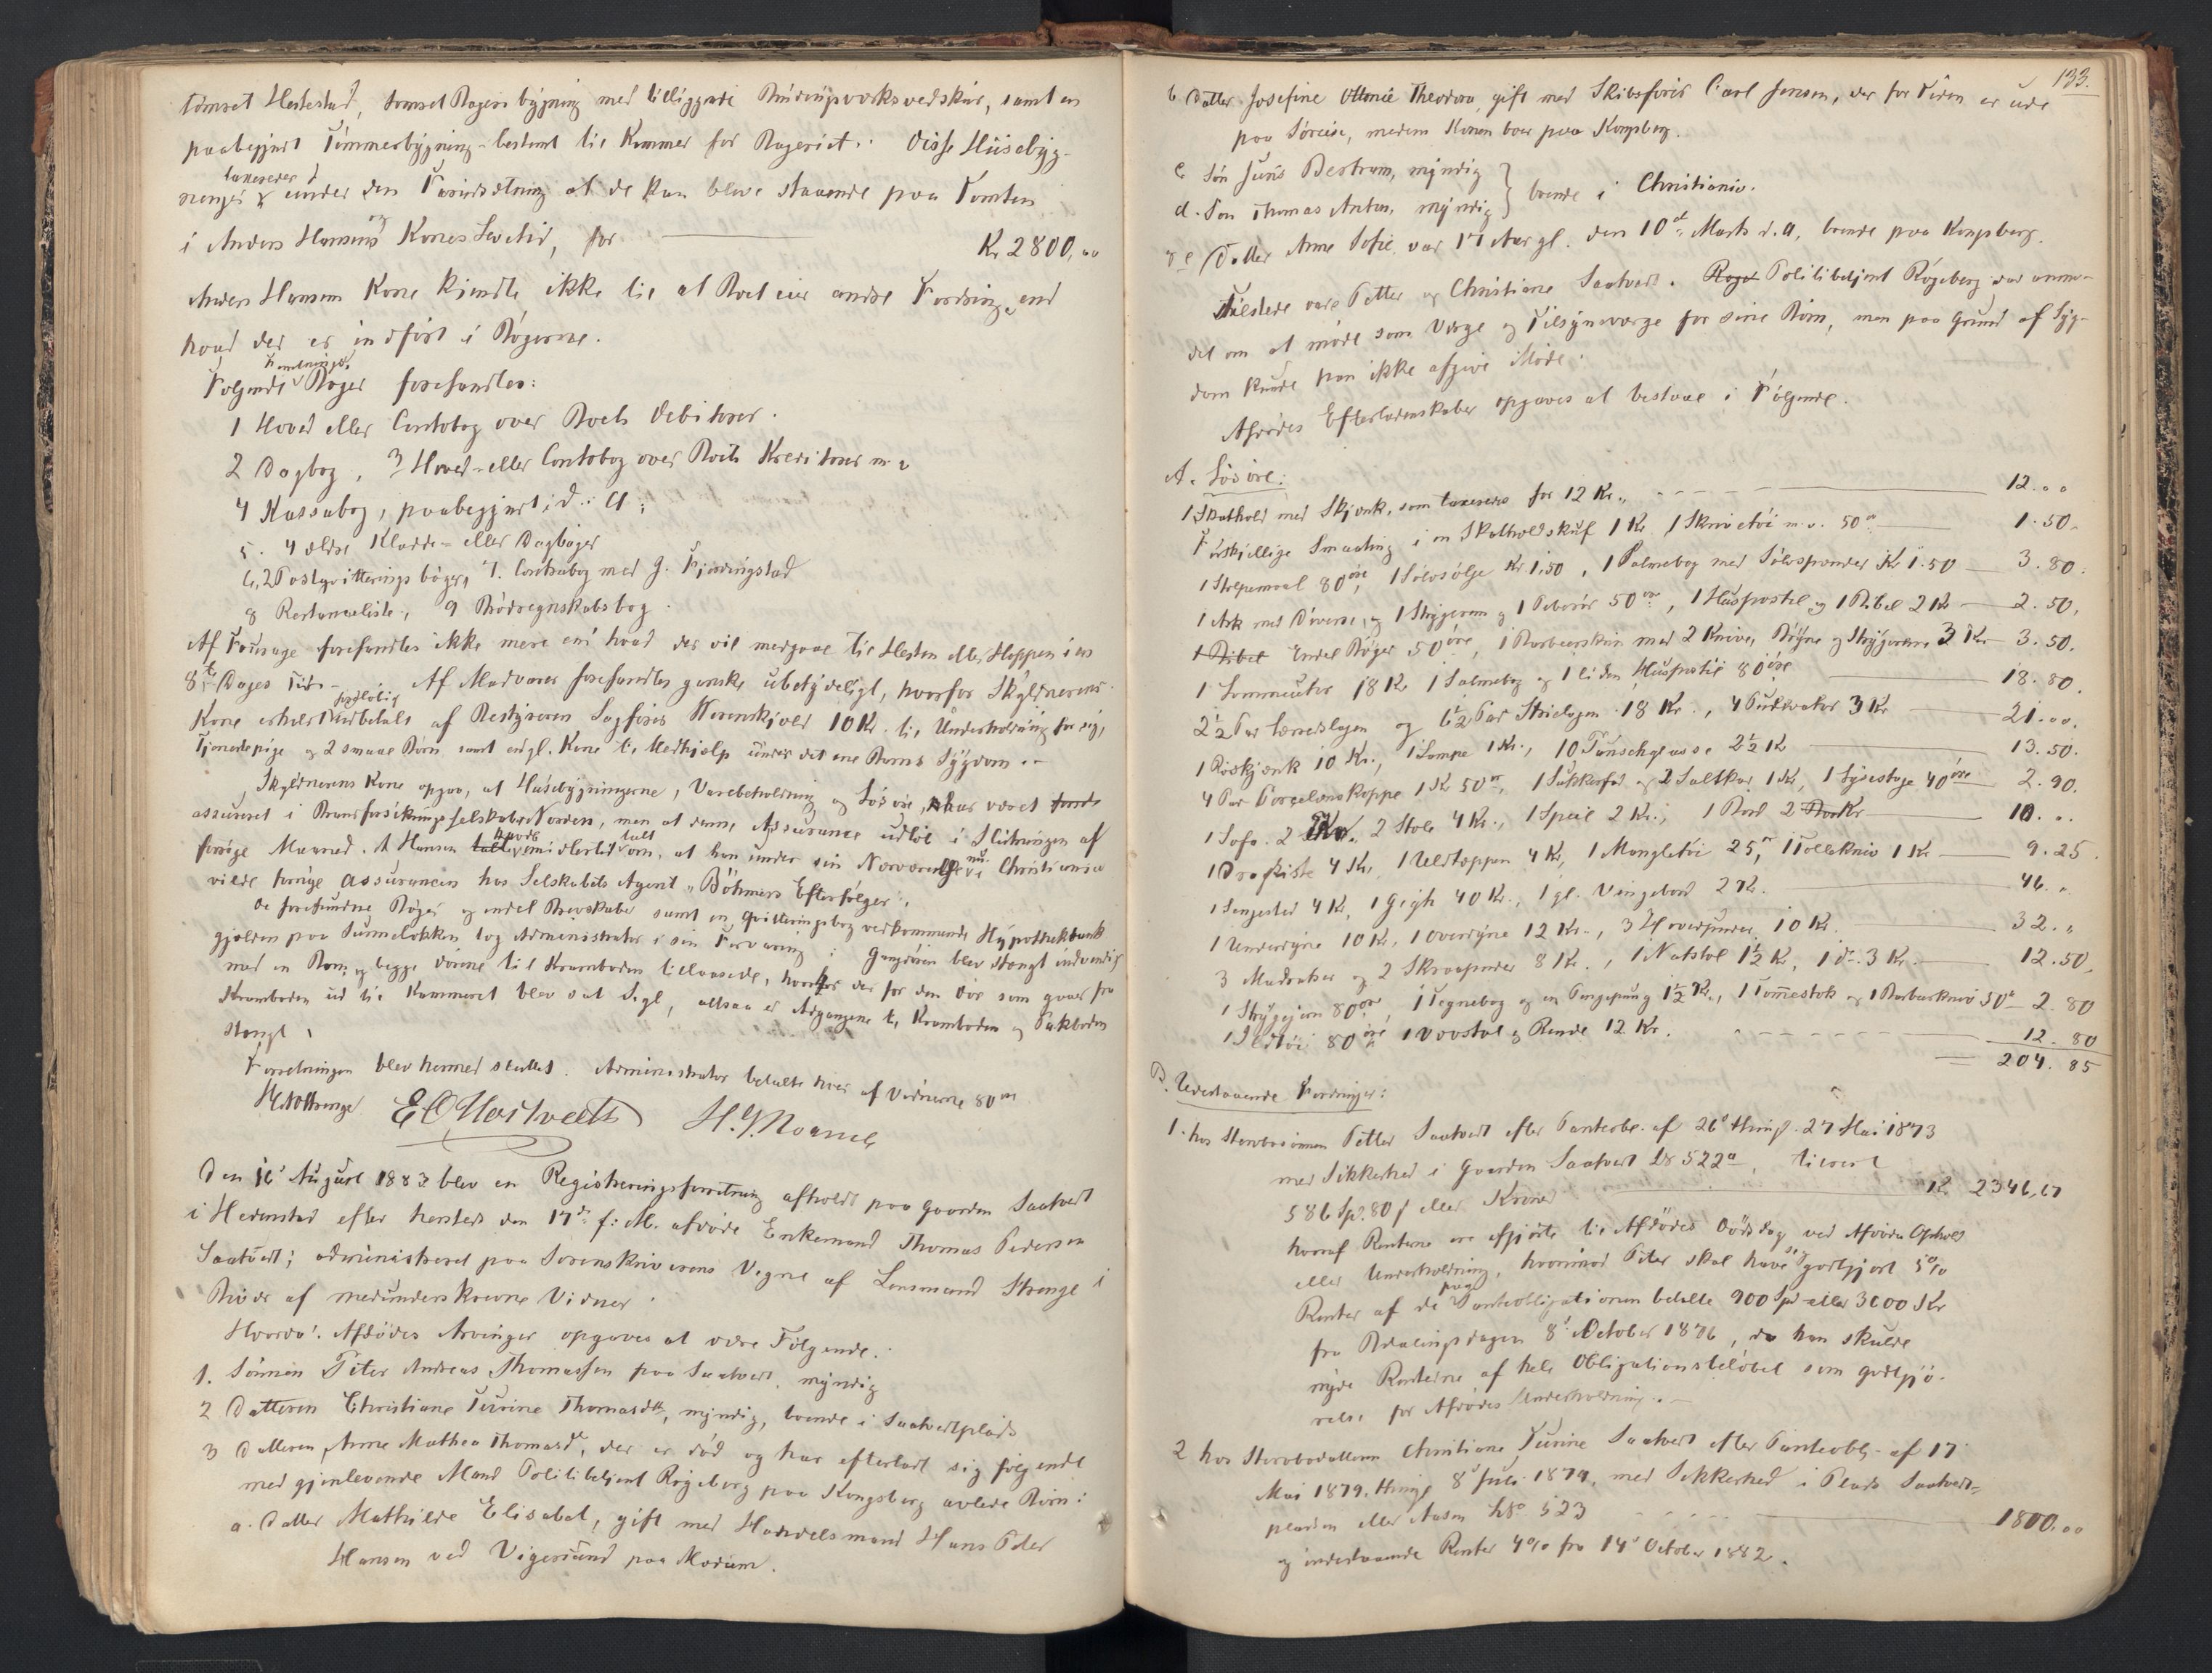 tømret Hestestad, tømret Bageri bygning med tilliggende samt en
paabegynt Tømmerbygning bestemt til Kammer for Bageriet. Disse Huusebyg-
taxeredes
ninger under den Forudsætning at de kan blive staaende paa Tomten
i Anders Hansens og Kones Levetid, for Kr 2800,00
Anders Hansens Kone kjendte ikke til at Boet eier andre Fordringer end
hvad der er indført i Bøgerne.
Følgende Forretnings Bøger forefandtes:
1 Hoved eller Contobog over Boets Debitorer.
2 Dagbog, 3 Hoved- eller Contobog over Boets Kreditorer m v
4 Kassabog, paabegyndt i d: A;
5. 4 ældre Kladde- eller Dagbøger
6, 2 Postqvitterings bøger, 7. Contrabog med G. Fjerdingstad
8 Restanceliste, 9 Brødregnskabsbog.
Af Fourage forefandtes ikke mere end hvad der vil medgaae til Hesten eller Hoppen i en
8te Dages Tid. Af Madvarer forefandtes ganske ubetydeligt, hvorfor Skyldnerens
Kone erholdt foreløbig udbetalt af Bestyreren Sagfører Werenskjold 10 Kr. til Underholdning for sig,
Tjenestepige og 2 smaae Børn samt en gl. Kone til Medhjælp under det ene Barns Sygdom.
Skyldnerens Kone opgav, at Husebygningerne, Varebeholdning og Løsøre, har været
assureret i Brandforsikringsselskabet Norden, men at denne Assurance udløb i Slutningen af
forrige Maaned. A Hansen havde imidlertid talt om, at han under sin Nærværelse nu i Christiania
vilde fornye assurancen hos Selskabets Agent "Böhmers Efterfølger".
De forefundne Bøger og endel Brevskaber samt en Qvitteringsbog vedkommende Hypothekbank
gjælden paa Sunneløkken tog Administrator i sin Forvaring; Gangdøren blev stængt indvendig
med en Bom, og begge dørene til Kramboden tillaasede, hvorhos der for den Dør som gaar fra
Kramboden ud til Kammeret blev sat Segl, altsaa er Adgangene til Kramboden og Pakboden
stængt.
Forretningen blev hermed sluttet. Administrator betalte hver af Vidnerne 80 øre
Den 16 August 1883 blev en Registreringsforretning afholdt paa Gaarden Saatvedt
i Hedenstad efter hersteds den 17de f: M. afdøde Enkemand Thomas Pedersen
Saatvedt; administreret paa Sorenskriverens Vegne af Lensmand Strange i
Overvær af medunderskrevne Vidner.
Hvorda: Afdødes Arvinger opgaves at være Følgende:
1. Sønnen Peter Andreas Thomassen paa Saatvedt, myndig
2 Datteren Christiane Turine Thomasdtr, myndig, boende i Saatvedtplads
3 Datteren Anne Mathea Thomasdtr, der er død og har efterladt sig følgende
med gjenlevende Mand Politibetjent Røgeberg paa Kongsberg avlede Børn:
a. Datter Mathilde Elisabet, gift med Handelsmand Hans Peter
Hansen ved Vigersund paa Modum.
133.
b Datter Josefine Ottonie Theodora, gift med Skibsfører Carl Jensen, der for Tiden er ude
paa Søreise, medens Konen boer paa Kongsberg.
c Søn Juris Bertram, myndig
d. Søn Thomas Anton, myndig } boende i Christiania.
og e Datter Anne Sofie var 17 Aar gl. den 10de Marts d.A, boende paa Kongsberg.
Tilstede vare Petter og Christiane Saatvedt. Politibetjent Røgeberg var anmo-
det om at møde som Værge og Tilsynsværge for sine Børn, men paa Grund af Syg-
dom kunde han ikke afgive Møde.
Afdødes Efterladenskaber opgaves at bestaae i Følgende.
A. Løsøre:
1 Skathold med Skjænk, som taxeredes for 12 Kr. 12.00
Forskjellige Smaating i en Skatholdskuf 1 Kr, 1 Skrivetøi m.v. 50 ø 1.50
1 Stolpemaal 80 øre, 1 Sølvsølje Kr 1,50, 1 Salmebog med Sølvspænder Kr 1.50 3.80
1 Ark med Diverse, og 1 Strygerem og 1 Peberør 50 øre, 1 Huspostil og 1 Bibel 2 Kr 2.50,
1 Bibel Endel Bøger 50 øre, 1 Barbeerskrin med 2 Knive, Bøyne og Strygerem 3 Kr 3.50.
1 Lommeuhr 18 Kr 1 Salmebog og 1 liden Huspostil 80 øre 18.80.
2½ Par Lærredslagen og 6½ Par Strielagen 18 Kr., 4 Pudevaar 3 Kr 21.00.
1 Roskjænk 10 Kr., 1 Lampe 1 Kr., 10 Punschglasse 2½ Kr 13.50.
4 Par Porcelænskoppe 1 Kr 50 ør, 1 Sukkerfad og 2 Saltkar 1 Kr, 1 Lysestage 40 øre 2.90.
1 Sofa 2 Kr. 2 Stole 4 Kr., 1 Speil 2 Kr., 1 Bord 2 Kr 10..
1 Dragkiste 4 Kr, 1 Uldteppen 4 Kr, 1 Mangletøi 25 ør, 1 Tolleknive 1 Kr 9.25
1 Sengested 4 Kr, 1 Gigh 40 Kr., 1 gl. Vingebord 2 Kr. 46.
1 Underdyne 10 Kr, 1 Overdyne 12 Kr., 3 Hovedpuder 10 Kr. 32.
3 Madratser og 2 Skraapuder 8 Kr., 1 Natstol 1½ Kr, 1 do 3 Kr. 12.50,
1 Strygejern 80 øre, 1 Tegnebog og en Pengepung 1½ Kr., 1 Tommestok og 1 Barberkniv 50 ø 2.80
1 Ildtøi 80 øre 1 Vævstol og Rende 12 Kr. 12.80
204.85
B. Udestaaende Fordringer:
1. hos Stervbosønnen Petter Saatvedt efter Panteobl. af 26 thingl. 27 Mai 1873
med Sikkerhed i Gaarden Saatvedt L No 522a, tilrest
586 Spd. 80 s eller Kroner 2346,67
hvoraf Renterne ere afgjorte til Afdødes Dødsdag ved Afdødes Ophold
eller Underholdning, hvorimod Peter skal have sig godtgjort 5%
Renter af de paa Panteobligationen betalte 900 Spd eller 3600 Kr
fra Betalingsdagen 8de October 1876, da han skulde
nyde Renterne af hele Obligationsbeløbet som godtgjø-
relse for Afdødes Underholdning.
2 hos Stervbodatteren Christiane Turine Saatvedt efter Panteobl. af 17
Mai 1879, thingl 8de Juli 1879, med Sikkerhed i Plads Saatvedt-
pladsen eller Aasen L No 523 1800.00
og indestaaende Renter 4% fra 14de October 1882.